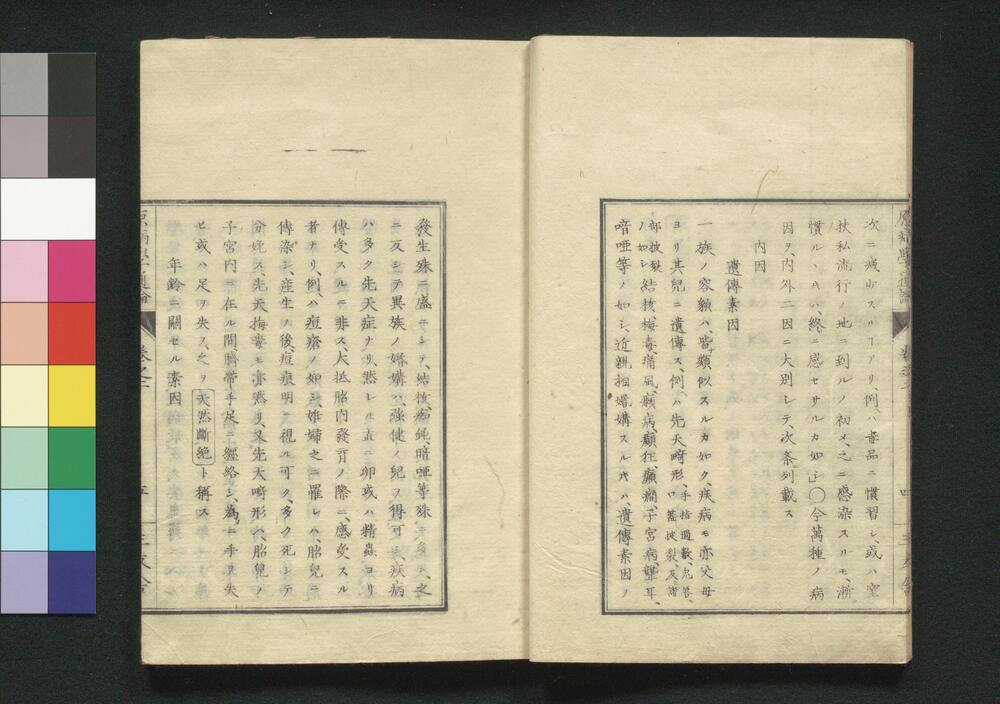 次ニ減少スル𪜈アリ、例ハ毒品ニ慣習シ、或ハ窒
扶私流行ノ地ニ到ルノ初メ、之ニ感染スリモ、漸
慣ル、キハ、終ニ感セサルカ如シ」〇今萬種ノ病
因ヲ、内外二因ニ大別シテ、次条列載ス
内因
遺傳素因
一族ノ容貌ハ、皆類似スルカ如ク、疾病モ亦父母
ヨリ其兒ニ遺傳ス、例ハ先天畸形、手指過數、兎唇、口蓋披裂、及諸
部披裂ノ如シ、結核、梅毒、痛風、癩病、癲狂、癲癇、子宮病、聾耳、
喑啞等ノ如シ、近親相婚媾スルキハ、遺傳素因ノ
發生殊ニ盛ニシテ、結核、痴鈍、喑啞等殊ニ多シ、之
ニ反シテ異族ノ婚媾ハ、強健ノ兒ヲ得可シ、疾病
ハ多ク先天症ナリ、然レ𪜈直ニ卵或ハ精蟲ヨリ
傳受スルニ非ス、大抵胎内發育ノ際ニ、感受スル
者ナリ、例ハ痘瘡ノ如シ、姙婦之ニ罹レハ、胎兒ニ
傳染シ、産生ノ後、痘痕明ニ視ル可ク、多ク死シテ
分娩ス、先天梅毒モ亦然リ、又先天畸形ハ、胎兒ノ
子宮内ニ在ル間、臍帯手足ニ纒絡シ、為ニ手ヲ失
ヒ或ハ足ヲ失ス、之ヲ天然斷絶ト稱ス
年齢ニ關セル素因